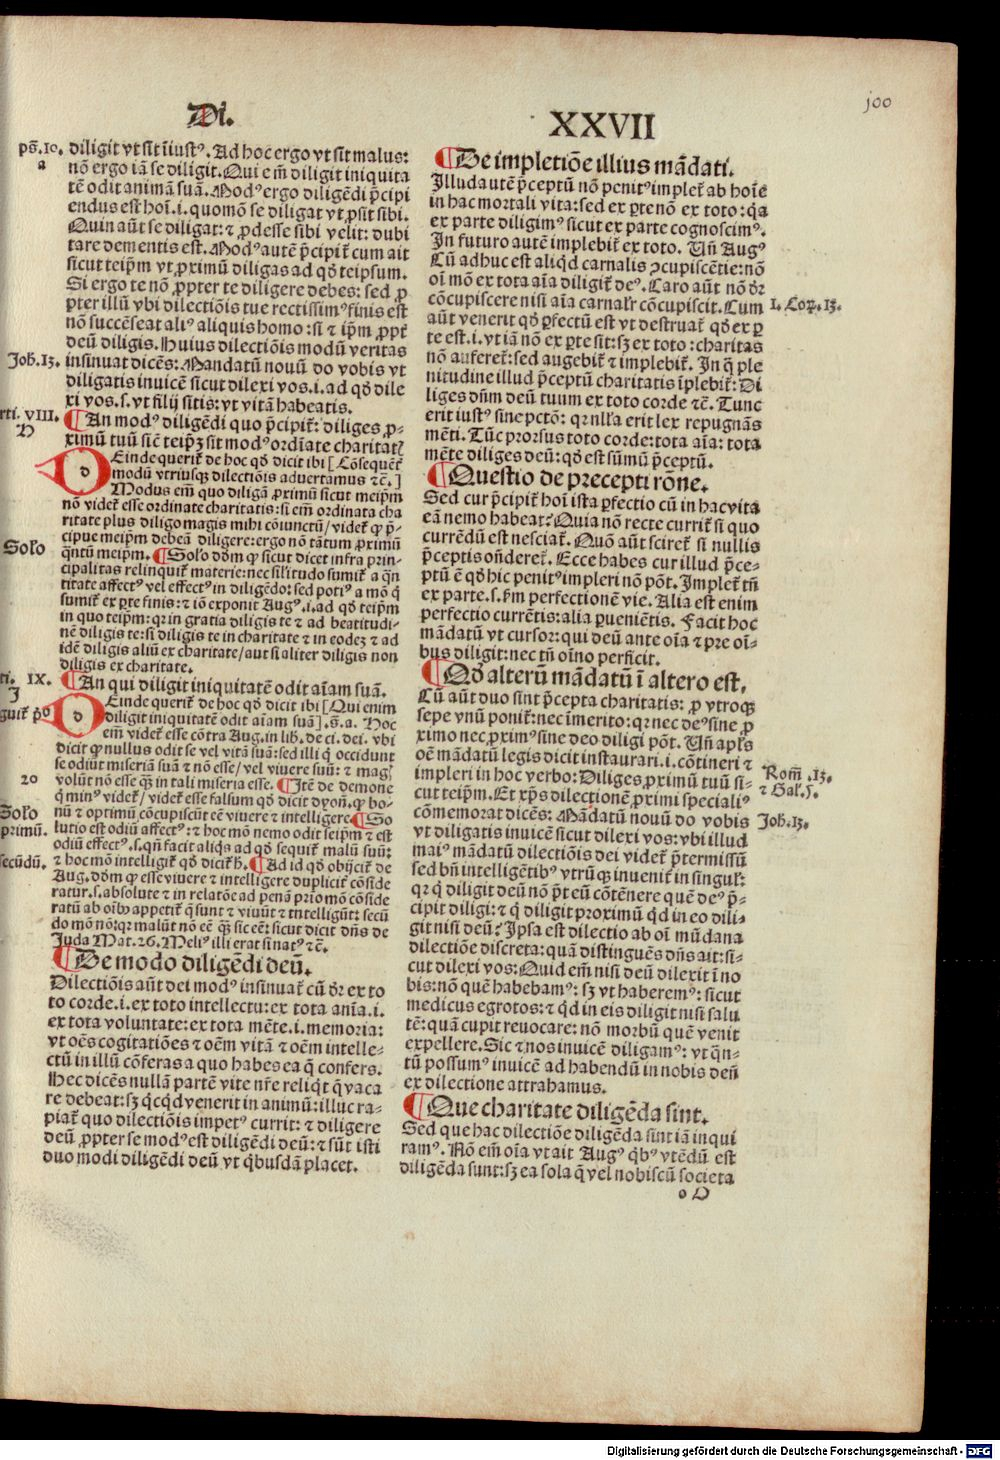 j00
Di.
XXVII
ps̄.10.
a
diligit vt sit īiustꝰ. Ad hoc ergo vt sit malus:
nō ergo iā se diligit. Qui em̄ diligit iniquita
tē odit animā suā. Modꝰ ergo diligēdi p̄cipi
endus est hoī. i. quomō se diligat vt ꝓsit sibi.
Quin aūt se diligat: ⁊ ꝓdesse sibi velit: dubi
tare dementis est. Modꝰ autē p̄cipit᷑ cum ait
sicut teip̄m vt ꝓximū diligas ad qḋ teipsum.
Si ergo te nō ꝓpter te diligere debes: sed ꝓ
pter illū vbi dilectiōis tue rectissimꝰ finis est
nō succēseat aliꝰ aliquis homo: si ⁊ ip̄m ꝓpt᷑
deū diligis. Huius dilectiōis modū veritas
Joh.13.
insinuat dicēs: Mandatū nouū do vobis vt
diligatis inuicē sicut dilexi vos. i. ad qḋ dile
xi vos. s. vt filij sitis: vt vitā habeatis.
rti. VIII.
¶ An modꝰ diligēdi quo p̄cipit᷑: diliges ꝓ-
ximū tuū sic̄ teip̄ꝫ sit modꝰ ordīate charitat᷑
D Einde querit᷑ de hoc qḋ dicit ibi [Cōsequēt᷑
modū vtriusqꝫ dilectiōis aduertamus ⁊c̄.]
Modus em̄ quo diligā ꝓximū sicut meip̄m
nō videt᷑ esse ordinate charitatis: si em̄ ordinata cha
ritate plus diligo magis mihi cōiunctū/ videt᷑ ꝙ p̄-
cipue meip̄m debeā diligere: ergo nō tātum ꝓximū
Solo
qntū meip̄m. ¶ Solo dōm ꝙ sicut dicet infra prin-
cipalitas relinquit᷑ materie: nec silitudo sumit᷑ a qn
titate affectꝰ vel effectꝰ in diligēdo: sed potiꝰ a mō q̇
sumit᷑ ex ꝑte finis: ⁊ iō exponit Augꝰ. i. ad qḋ teip̄m
in quo teip̄m: qꝛ in gratia diligis te ⁊ ad beatitudi-
nē diligis te: si diligis te in charitate ⁊ in eodeꝫ ⁊ ad
idē diligis aliū ex charitate/ aut si aliter diligis non
diligis ex charitate.
ti. IX.
¶ An qui diligit iniquitatē odit aīam suā.
D Einde querit᷑ de hoc qḋ dicit ibi [Qui enim
diligit iniquitatē odit aīam suā]. Hoc
em̄ videt᷑ esse cōtra Aug. in lib. de ci. dei. vbi
dicit ꝙ nullus odit se vel vitā suā: sed illi q̇ occidunt
se odiūt miseriā suā ⁊ nō esse/ vel viuere suū: ⁊ magꝭ
20
volūt nō esse qꝫ in tali miseria esse. ¶ Itē de demone
q̇ minꝰ videt᷑/ videt᷑ esse falsum qḋ dicit dyoñ. ꝙ bo-
nū ⁊ optimū cōcupiscūt eē viuere ⁊ intelligere. ¶ So
Solo
primū.
lutio est odiū affectꝰ: ⁊ hoc mō nemo odit seip̄m ⁊ est
odiū effectꝰ. s. qn̄ facit aliqḋ ad qḋ sequit᷑ malū suū:
secūdū.
⁊ hoc mō intelligit᷑ qḋ dicit᷑ h̄. ¶ Ad id qḋ obijcit᷑ de
Aug. dōm ꝙ esse viuere ⁊ intelligere duplicit᷑ cōside
ratur. s. absolute ⁊ in relatōe ad penā prīo mō cōside
ratū ab oībꝰ appetit᷑ q̇ sunt ⁊ viuūt ⁊ intelligūt: secū
do mō nō: qꝛ malūt nō eē qꝫ sic eē: sicut dicit dn̄s de
Juda Mat. 26. Meliꝰ illi erat si natꝰ ⁊c̄.
¶ De modo diligēdi deū.
Dilectiōis aūt dei modꝰ insinuat᷑ cū dr̄ ex to
to corde. i. ex toto intellectu: ex tota anīa. i.
ex tota voluntate: ex tota mēte. i. memoria:
vt oēs cogitatiōes ⁊ oēm vitā ⁊ oēm intelle-
ctū in illū cōferas a quo habes ea q̇ confers.
Hec dicēs nullā partē vite nr̄e reliqt q̇ vaca
re debeat: sꝫ qcqd venerit in animū: illuc ra-
piat᷑ quo dilectiōis impetꝰ currit: ⁊ diligere
deū ꝓpter se modꝰ est diligēdi deū: ⁊ sūt isti
duo modi diligēdi deū vt qbusdā placet.
¶ De impletiōe illius mādati.
Illud autē p̄ceptū nō penitꝰ implet᷑ ab hoīe
in hac mortali vita: sed ex ꝑte nō ex toto: qa
ex parte diligimꝰ sicut ex parte cognoscimꝰ.
In futuro autē implebit᷑ ex toto. Vn̄ Augꝰ
Cū adhuc est aliqd carnalis ꝯcupiscētie: nō
oī mō ex tota aīa diligit᷑ deꝰ. Caro aūt nō dr̄
cōcupiscere nisi aīa carnalr̄ cōcupiscit. Cum
1. Coꝝ. 13.
aūt venerit qḋ ꝑfectū est vt destruat᷑ qḋ ex ꝑ
te est. i. vt iā nō ex ꝑte sit: sꝫ ex toto: charitas
nō auferet᷑: sed augebit᷑ ⁊ implebit᷑. In q̇ ple
nitudine illud p̄ceptū charitatis īplebit᷑: Di
liges dn̄m deū tuum ex toto corde ⁊c̄. Tunc
erit iustꝰ sine pctō: qꝛ nlla erit lex repugnās
mēti. Tūc prorsus toto corde: tota aīa: tota
mēte diliges deū: qḋ est sūmū p̄ceptū.
¶ Questio de precepti rōne.
Sed cur p̄cipit᷑ hoī ista ꝑfectio cū in hac vita
eā nemo habeat? Quia nō recte currit᷑ si quo
currēdū est nesciat᷑. Quō aūt sciret᷑ si nullis
p̄ceptis oñderet᷑. Ecce habes cur illud p̄ce-
ptū ē qḋ hic penitꝰ impleri nō pōt. Implet᷑ tn̄
ex parte. s. ẜm perfectionē vie. Alia est enim
perfectio currētis: alia ꝑueniētis. Facit hoc
mādatū vt cursor: qui deū ante oīa ⁊ pre oī-
bus diligit: nec tn̄ oīno perficit.
¶ Qḋ alterū mādatū ī altero est.
Cū aūt duo sint p̄cepta charitatis: ꝓ vtroqꝫ
sepe vnū ponit᷑: nec īmerito: qꝛ nec deꝰ sine ꝓ
ximo nec ꝓximꝰ sine deo diligi pōt. Vn̄ apl̄s
oē mādatū legis dicit instaurari. i. cōtineri ⁊
impleri in hoc verbo: Diliges ꝓximū tuū si-
Rom̄. 13.
⁊ Gal. 5.
cut teip̄m. Et xp̄s dilectionē ꝓximi specialiꝰ
cōmemorat dicēs: Mādatū nouū do vobis
Joh.13.
vt diligatis inuicē sicut dilexi vos: vbi illud
maiꝰ mādatū dilectiōis dei videt᷑ p̄termissū
sed bn̄ intelligētibꝰ vtrūqꝫ inuenit᷑ in singul᷑:
qꝛ q̇ diligit deū nō pt eū cōtēnere quē deꝰ p̄-
cipit diligi: ⁊ q̇ diligit proximū qd in eo dili-
git nisi deū? Ipsa est dilectio ab oī mūdana
dilectiōe discreta: quā distinguēs dn̄s ait: si-
cut dilexi vos: Quid em̄ nisi deū dilexit ī no
bis: nō quē habebamꝰ: sꝫ vt haberemꝰ: sicut
medicus egrotos: ⁊ qd in eis diligit nisi salu
tē: quā cupit reuocare: nō morbū quē venit
expellere. Sic ⁊ nos inuicē diligamꝰ: vt qn-
tū possumꝰ inuicē ad habendū in nobis deū
ex dilectione attrahamus.
¶ Que charitate diligēda sint.
Sed que hac dilectiōe diligēda sint iā inqui
ramꝰ. Nō em̄ oīa vt ait Augꝰ qbꝰ vtēdū est
diligēda sunt: sꝫ ea sola q̇ vel nobiscū societa
o D
Digitalisierung gefördert durch die Deutsche Forschungsgemeinschaft - DFG